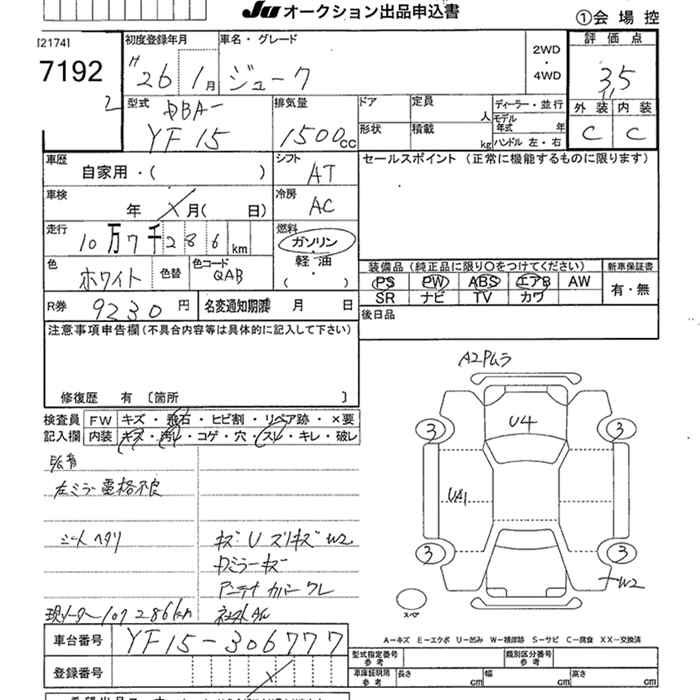 JU オークション出品申込書
①会 場 控
[2174]
7192
2
初度登録年月
H 26 1月
車名・グレード
ジューク
2WD
・
4WD
評 価 点
3.5
外 装 内 装
C C
型式
DBA-
YF15
排気量
1500cc
ドア
定員
人
形状
積載
kg
ディーラー・並行
モデル年式 年
ハンドル 左・右
車歴
自家用・( )
シフト
AT
セールスポイント (正常に機能するものに限ります)
車検
年 月( 日)
冷房
AC
走行
10万7千286km
燃料
ガソリン
・
軽 油
・
( )
色
ホワイト
色替
色コード
QAB
装備品(純正品に限り○をつけてください)
PS PW ABS エアB AW
SR ナビ TV カワ
新車保証書
有・無
R券
9230円
名変通知期限 月 日
後日品
注意事項申告欄(不具合内容等は具体的に記入して下さい)
修復歴 有 〔箇所 〕
検査員
記入欄
FW キズ・飛石・ヒビ割・リペア跡・×要
内装 キズ・汚れ・コゲ・穴・スレ・キレ・破レ
左ミラー電格不良
シートヘタリ
キズ U スリキズ W2
Dミラーキズ
アンテナカバーワレ
現メーター107286km
A2Pムラ
U4
3
3
UA1
3
3
W2
スペア
A－キズ E－エクボ U－凹み W－補修跡 S－サビ C－腐食 XX－交換済
車台番号
YF15-306777
登録番号
型式指定番号
参考
類別区分番号
参考
車庫証明用
参考
長さ cm
幅 cm
高さ cm